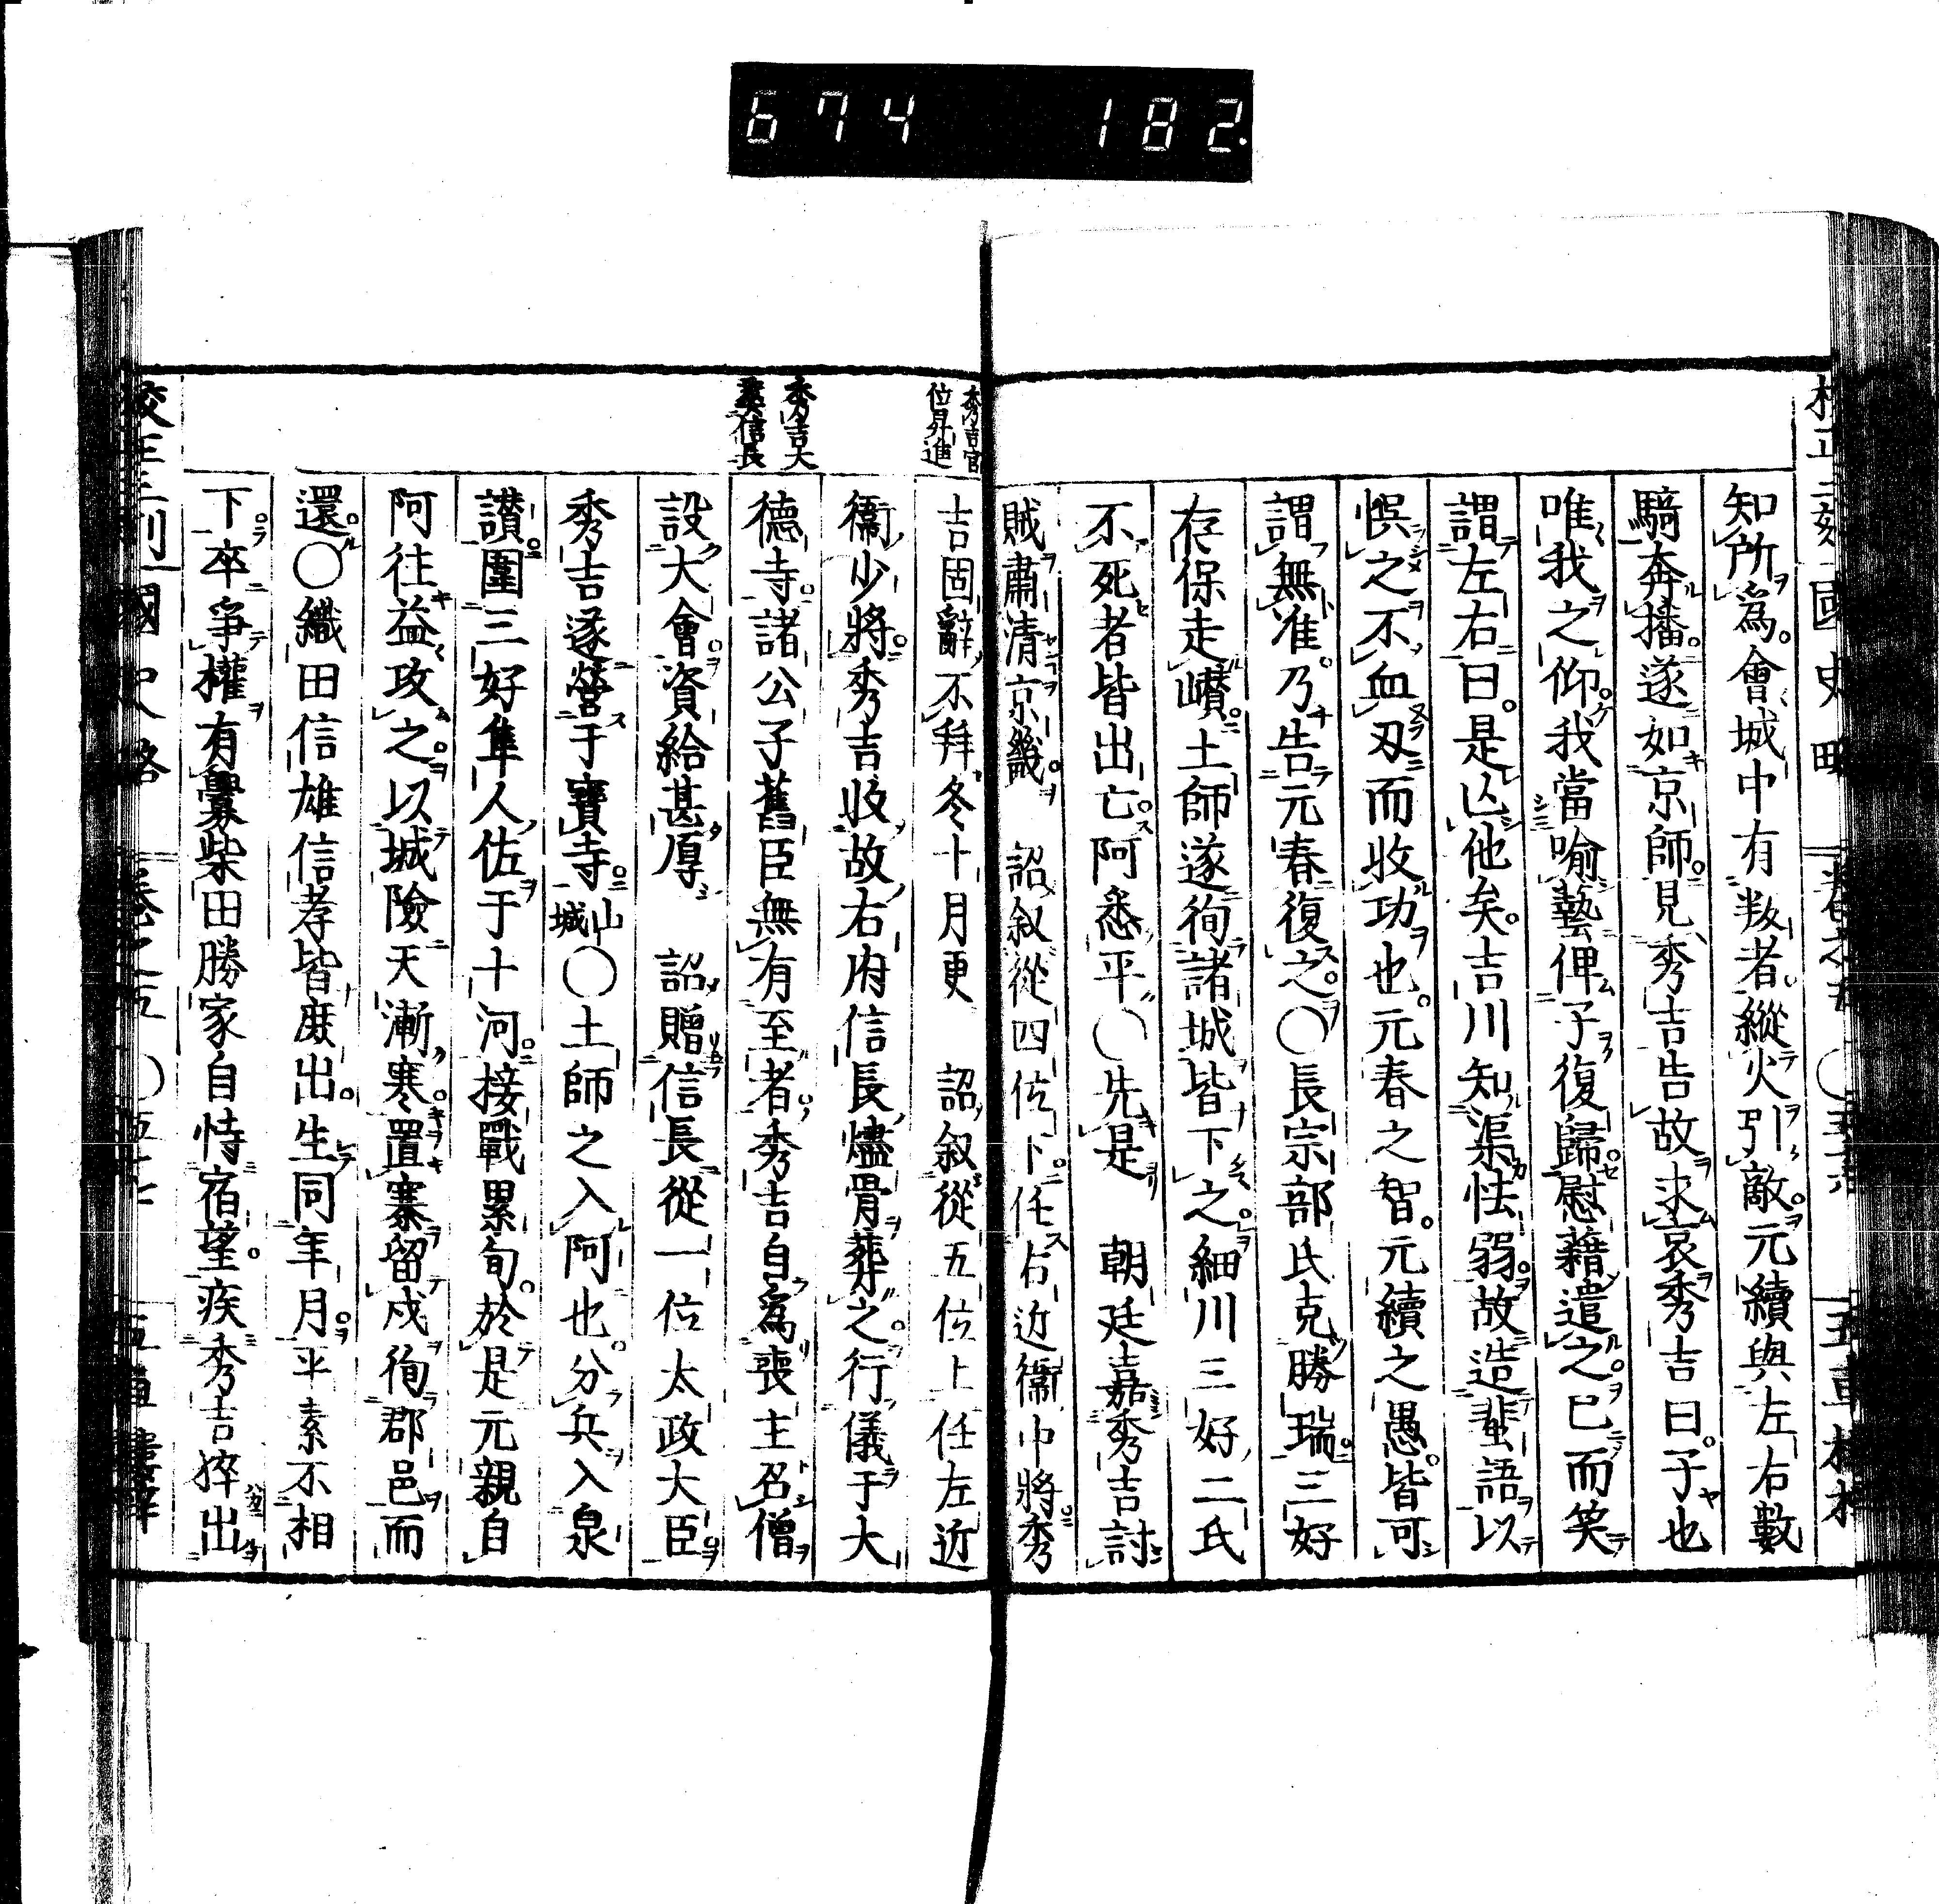 674 182.
知所爲。會城中有叛者。縱火引敵。元續與左右數
騎奔播。遂如京師。見秀吉告故求哀。秀吉曰。子也
唯我之仰。我當喻藝俾子復歸。慰藉遣之。已而笑
謂左右曰。是亾他矣。吉川知渠怯弱。故造蜚語以
悞之。不血刃而收功也。元春之智。元續之愚。皆可
謂無准。乃告元春復之。○長宗部氏克勝瑞。三好
存保走巑。土師遂徇諸城。皆下之。細川三好二氏
不死者皆出亡。阿悉平。○先是 朝廷嘉秀吉討
賊肅清京畿。 詔叙從四位下任右近衞中將。秀
秀吉官
位昇進
吉固辭不拜。冬十月更 詔叙從五位上任左近
衞少將。秀吉收故右府信長燼骨葬之。行儀于大
秀吉大
葬信長
德寺。諸公子舊臣無有至者。秀吉自爲喪主。召僧
設大會。資給甚厚 詔贈信長從一位太政大臣
秀吉遂營于寶寺。山
城○土師之入阿也。分兵入泉
讃。圍三好隼人佐于十河。接戰累旬。於是元親自
阿往益攻之。以城險天漸寒。置寨留戍徇郡邑而
還。○織田信雄信孝皆庶出。生同年月。平素不相
下。卒爭權有釁。柴田勝家自恃宿望。疾秀吉猝出
國史略